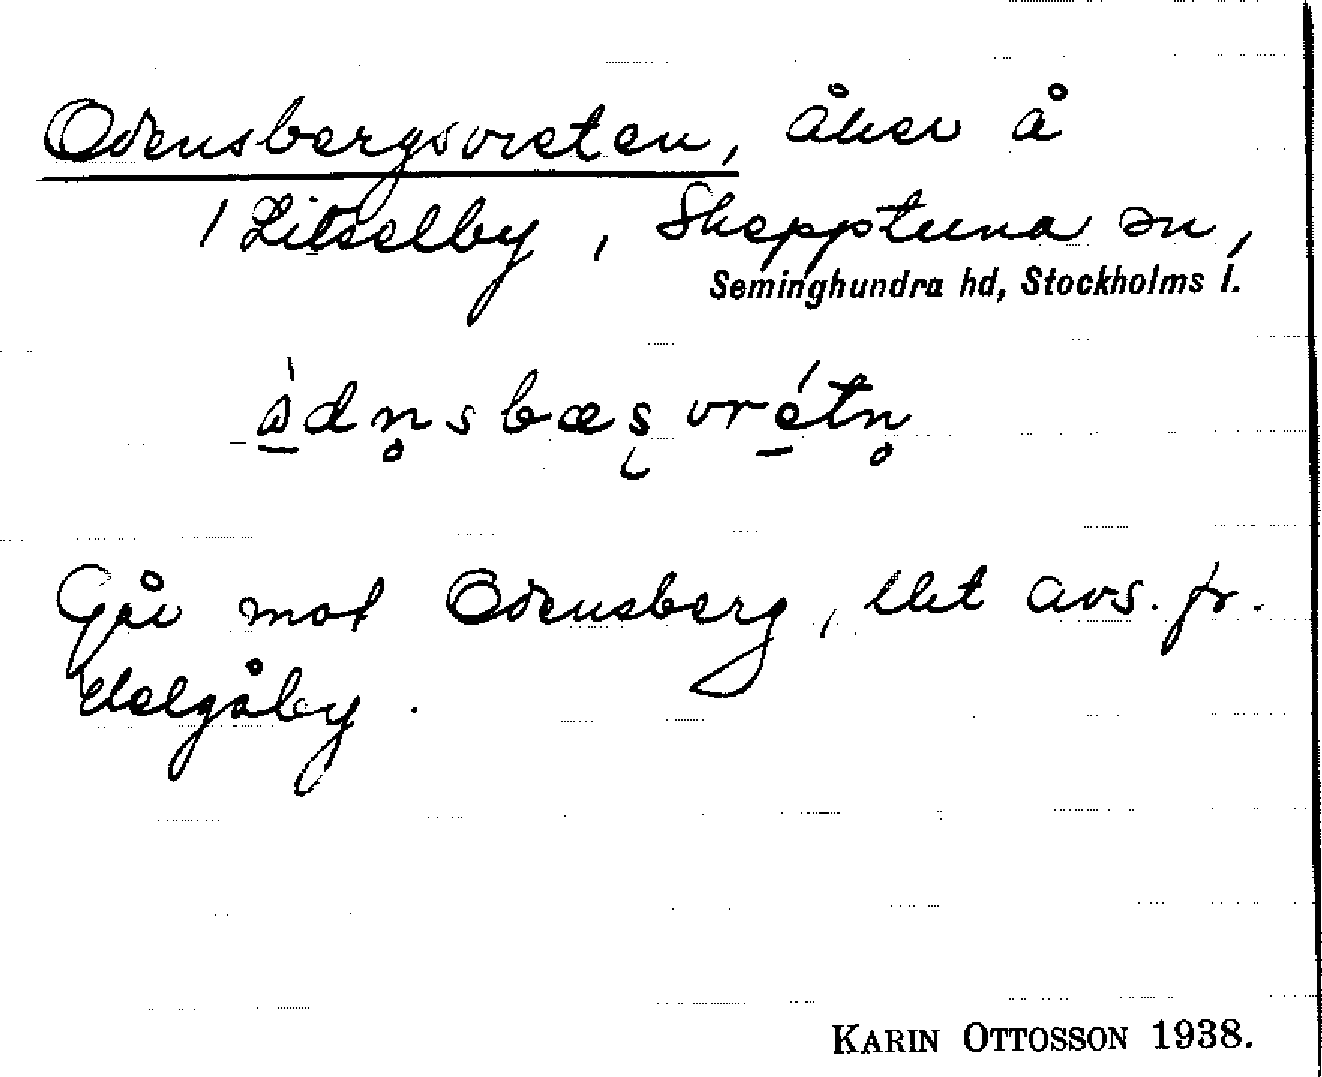 Odensbergsvreten, åker å
/ Litselby, Skepptuna sn,
Seminghundra hd, Stockholms l.
ò̱dn̥sbæş vré̱tn̥
Går mot Odensberg, litet avs. fr.
Helgåby.
KARIN OTTOSSON 1938.